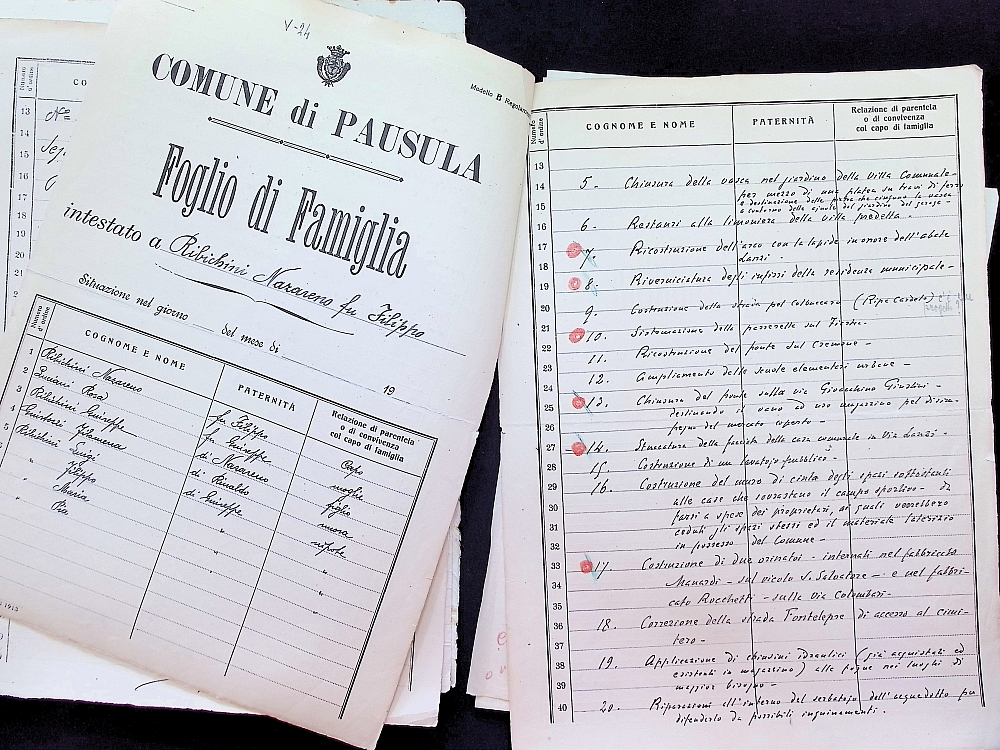 V-24
COMUNE di PAUSULA
Modello B
Foglio di Famiglia
intestato a Ribichini Nazareno fu Filippo
Situazione nel giorno del mese di
19
Numero d'ordine
COGNOME E NOME
PATERNITÀ
Relazione di parentela
o di convivenza
col capo di famiglia
1 Ribichini Nazareno fu Filippo Capo
2 Luciani Rosa fu Giuseppe moglie
3 Ribichini Giuseppe di Nazareno figlio
4 Giustozzi Filomena di Rinaldo nuora
5 Ribichini Luigi di Giuseppe nipote
" Filippo " "
" Maria " "
" Pia " "
1913
Numero d'ordine
CO
13
14
15
16
17
18
19
20
21
Numero d'ordine
COGNOME E NOME
PATERNITÀ
Relazione di parentela
o di convivenza
col capo di famiglia
13
14 5- Chiusura della vasca nel giardino della Villa Comunale-
per mezzo di una platea su travi di ferro
15 e destinazione delle pietre che cingono la vasca
a contorno delle ajuole del giardino
16 6- Restauri alla limoniera della villa predetta.
17 7. Ricostruzione dell'arco con la lapide in onore dell'abate
Lanzi.
18
19 8. Riverniciatura degli infissi della residenza municipale-
20 9. Costruzione della strada pel Colbuccaro (Ripa Cardeto)
21 10. Sistemazione della passerella sul Fiastra-
22 11. Ricostruzione del ponte sul Cremone-
23 12. Ampliamento delle scuole elementari urbane-
24 13. Chiusura del ponte sulla via Giovacchino Giustini-
25 destinando il vano ad uso magazzino pel
26 del mercato coperto-
27 14. Stuccatura della facciata della casa comunale in Via Lanzi-
28 15. Costruzione di un lavatojo pubblico-
29 16. Costruzione del muro di cinta degli spazi sottostanti
30 alle case che sovrastano il campo sportivo- da
farsi a spese dei proprietari, ai quali verrebbero
31 ceduti gli spazi stessi ed il materiale laterizio
32 in possesso del Comune-
33 17 Costruzione di due orinatoi- internati nel fabbricato
34 Manardi- sul vicolo S. Salvatore- e nel fabbri-
35 cato Rocchetti- sulla Via Colombari-
36 18. Correzione della strada Fontelepre di accesso al cimi-
37 tero-
38 19. Applicazione di chiusini idraulici (già acquistati ed
esistenti in magazzino) alle fogne nei luoghi di
39 maggior bisogno-
40 20. Riparazioni all'interno del serbatojo dell'acquedotto per
difenderlo da possibili inquinamenti.